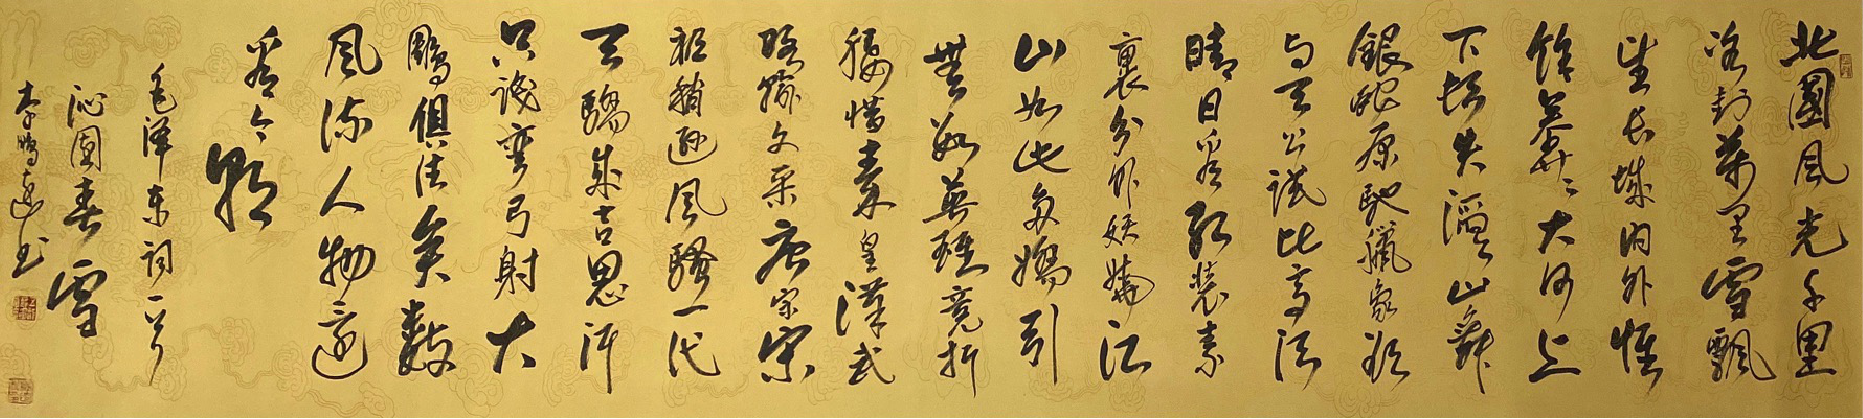 北國風光千里
冰封萬里雪飄
望長城内外惟
餘莽々大河上
下頓失滔々山舞
銀蛇原馳蠟象欲
与天公試比高須
晴日看紅裝素
裹分外妖嬈江
山如此多嬌引
無數英雄競折
腰惜秦皇漢武
略輸文采唐宗宋
祖稍遜風騷一代
天驕成吉思汗
只識彎弓射大
鵰俱往矣數
風流人物還
看今朝
毛澤東詞一首
沁園春雪
李遠书